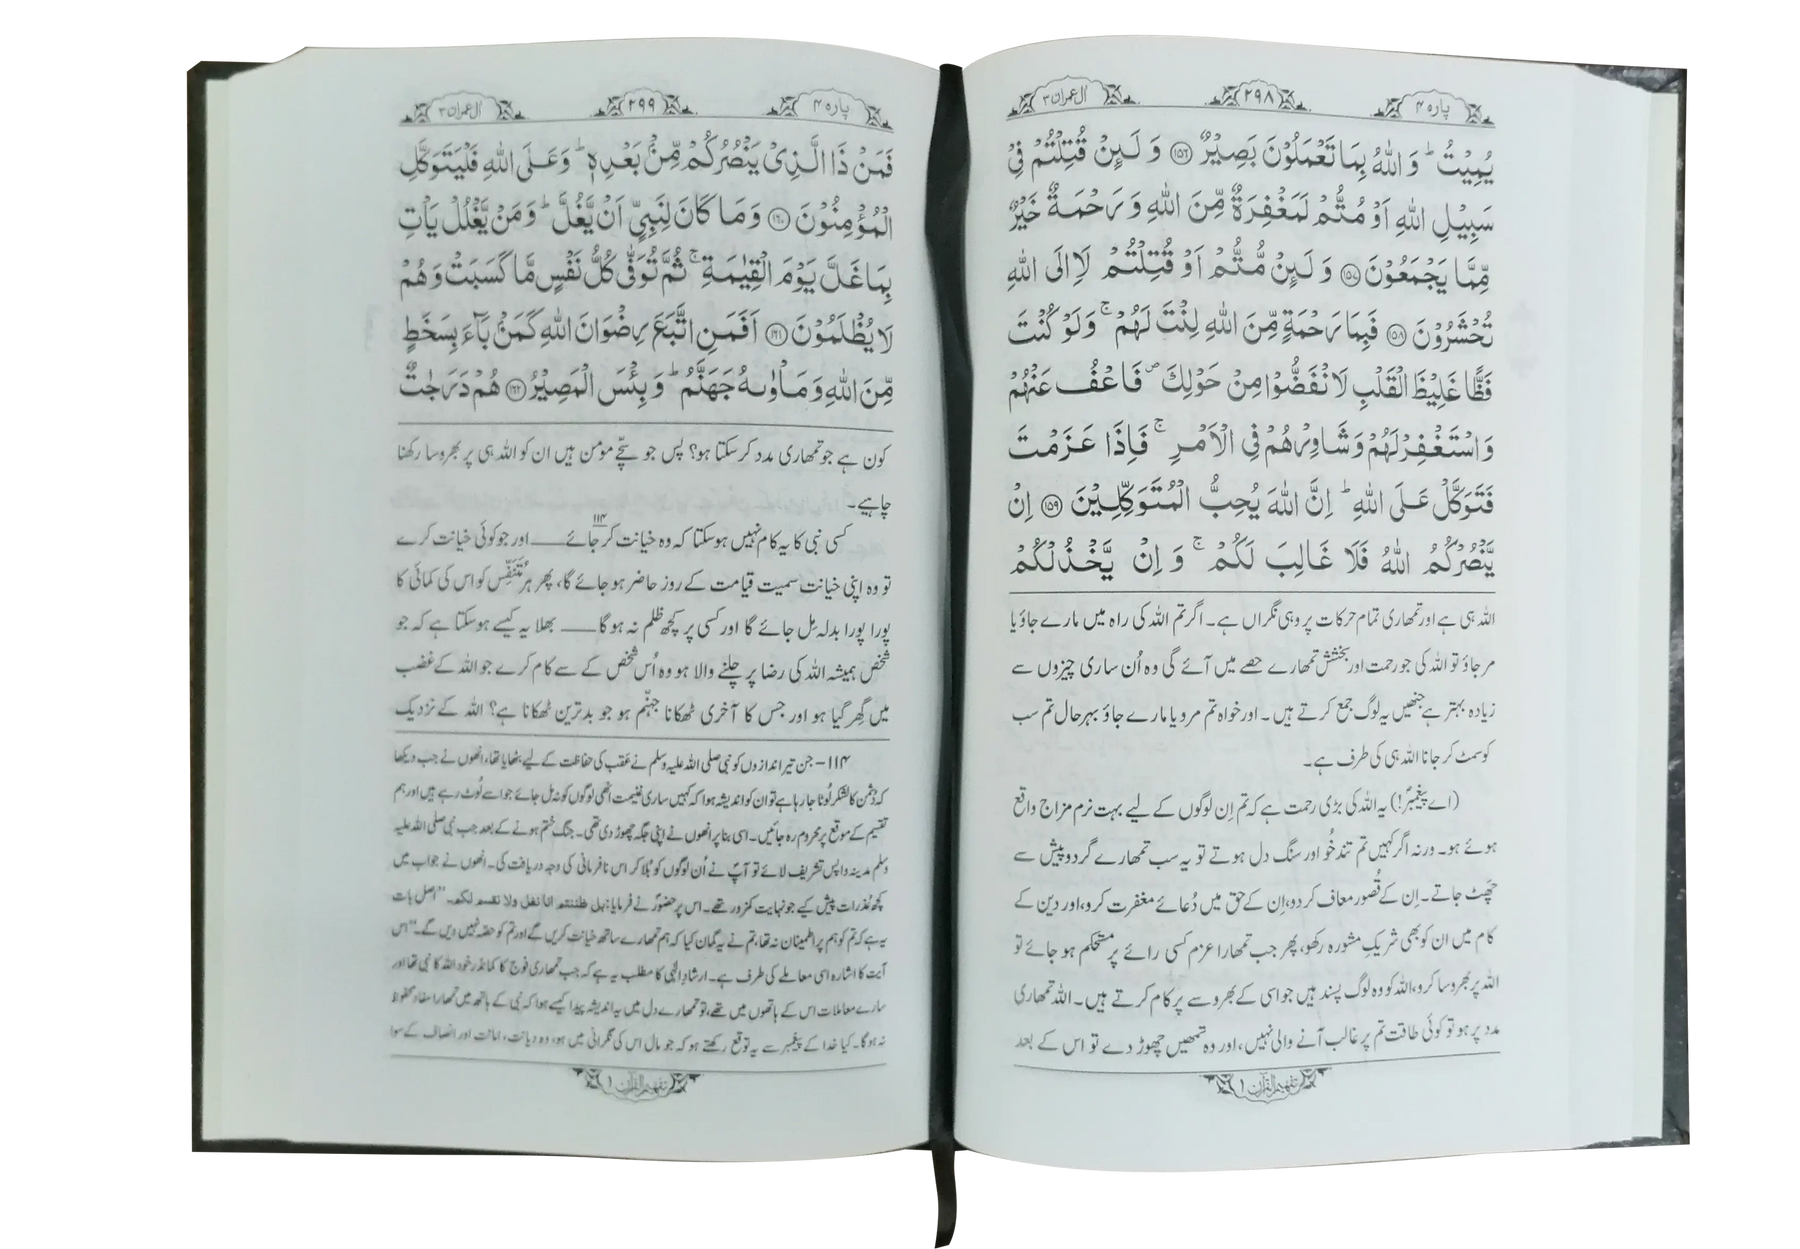 پاره ۴
۲۹۸
اٰل عمران ۳
يُمِيْتُ ؕ وَ اللّٰهُ بِمَا تَعْمَلُوْنَ بَصِيْرٌ ﴿۱۵۶﴾ وَ لَىِٕنْ قُتِلْتُمْ فِیْ
سَبِيْلِ اللّٰهِ اَوْ مُتُّمْ لَمَغْفِرَةٌ مِّنَ اللّٰهِ وَ رَحْمَةٌ خَيْرٌ
مِّمَّا يَجْمَعُوْنَ ﴿۱۵۷﴾ وَ لَىِٕنْ مُّتُّمْ اَوْ قُتِلْتُمْ لَاِالَى اللّٰهِ
تُحْشَرُوْنَ ﴿۱۵۸﴾ فَبِمَا رَحْمَةٍ مِّنَ اللّٰهِ لِنْتَ لَهُمْ ۚ وَ لَوْ كُنْتَ
فَظًّا غَلِيْظَ الْقَلْبِ لَانْفَضُّوْا مِنْ حَوْلِكَ ۪ فَاعْفُ عَنْهُمْ
وَ اسْتَغْفِرْ لَهُمْ وَ شَاوِرْهُمْ فِی الْاَمْرِ ۚ فَاِذَا عَزَمْتَ
فَتَوَكَّلْ عَلَى اللّٰهِ ؕ اِنَّ اللّٰهَ يُحِبُّ الْمُتَوَكِّلِيْنَ ﴿۱۵۹﴾ اِنْ
يَّنْصُرْكُمُ اللّٰهُ فَلَا غَالِبَ لَكُمْ ۚ وَ اِنْ يَّخْذُلْكُمْ
اللہ ہی ہے اور تمھاری تمام حرکات پر وہی نگراں ہے۔ اگر تم اللہ کی راہ میں مارے جاؤ یا
مر جاؤ تو اللہ کی جو رحمت اور بخشش تمھارے حصے میں آئے گی وہ اُن ساری چیزوں سے
زیادہ بہتر ہے جنھیں یہ لوگ جمع کرتے ہیں۔ اور خواہ تم مرو یا مارے جاؤ بہر حال تم سب
کو سمٹ کر جانا اللہ ہی کی طرف ہے۔
(اے پیغمبرؐ!) یہ اللہ کی بڑی رحمت ہے کہ تم اِن لوگوں کے لیے بہت نرم مزاج واقع
ہوئے ہو۔ ورنہ اگر کہیں تم تند خُو اور سنگ دل ہوتے تو یہ سب تمھارے گردو پیش سے
چَھٹ جاتے۔ اِن کے قُصور معاف کر دو، اِن کے حق میں دُعائے مغفرت کرو، اور دین کے
کام میں ان کو بھی شریکِ مشورہ رکھو، پھر جب تمھارا عزم کسی رائے پر مستحکم ہو جائے تو
اللہ پر بھروسا کرو، اللہ کو وہ لوگ پسند ہیں جو اسی کے بھروسے پر کام کرتے ہیں۔ اللہ تمھاری
مدد پر ہو تو کوئی طاقت تم پر غالب آنے والی نہیں، اور وہ تمھیں چھوڑ دے تو اس کے بعد
تفہیم القرآن ۱
پاره ۴
۲۹۹
اٰل عمران ۳
فَمَنْ ذَا الَّذِیْ يَنْصُرُكُمْ مِّنْۢ بَعْدِهٖ ؕ وَ عَلَى اللّٰهِ فَلْيَتَوَكَّلِ
الْمُؤْمِنُوْنَ ﴿۱۶۰﴾ وَ مَا كَانَ لِنَبِیٍّ اَنْ يَّغُلَّ ؕ وَ مَنْ يَّغْلُلْ يَاْتِ
بِمَا غَلَّ يَوْمَ الْقِيٰمَةِ ۚ ثُمَّ تُوَفّٰى كُلُّ نَفْسٍ مَّا كَسَبَتْ وَ هُمْ
لَا يُظْلَمُوْنَ ﴿۱۶۱﴾ اَفَمَنِ اتَّبَعَ رِضْوَانَ اللّٰهِ كَمَنْۢ بَآءَ بِسَخَطٍ
مِّنَ اللّٰهِ وَ مَاْوٰىهُ جَهَنَّمُ ؕ وَ بِئْسَ الْمَصِيْرُ ﴿۱۶۲﴾ هُمْ دَرَجٰتٌ
کون ہے جو تمھاری مدد کر سکتا ہو؟ پس جو سچّے مومن ہیں ان کو اللہ ہی پر بھروسا رکھنا
چاہیے۔
کسی نبی کا یہ کام نہیں ہو سکتا کہ وہ خیانت کر جائے ۱۱۴ــــ اور جو کوئی خیانت کرے
تو وہ اپنی خیانت سمیت قیامت کے روز حاضر ہو جائے گا، پھر ہر مُتَنَفِّس کو اس کی کمائی کا
پورا پورا بدلہ مِل جائے گا اور کسی پر کچھ ظلم نہ ہو گا ــــ بھلا یہ کیسے ہو سکتا ہے کہ جو
شخص ہمیشہ اللہ کی رضا پر چلنے والا ہو وہ اُس شخص کے سے کام کرے جو اللہ کے غضب
میں گِھر گیا ہو اور جس کا آخری ٹھکانا جہنّم ہو جو بدترین ٹھکانا ہے؟ اللہ کے نزدیک
۱۱۴- جن تیر اندازوں کو نبی صلی اللہ علیہ وسلم نے عقب کی حفاظت کے لیے بٹھایا تھا، انھوں نے جب دیکھا
کہ دشمن کا لشکر لُوٹا جا رہا ہے تو ان کو اندیشہ ہوا کہ کہیں ساری غنیمت انھی لوگوں کو نہ مل جائے جو اسے لُوٹ رہے ہیں اور ہم
تقسیم کے موقع پر محروم رہ جائیں۔ اسی بنا پر انھوں نے اپنی جگہ چھوڑ دی تھی۔ جنگ ختم ہونے کے بعد جب نبی صلی اللہ علیہ
وسلم مدینہ واپس تشریف لائے تو آپؐ نے اُن لوگوں کو بُلا کر اس نافرمانی کی وجہ دریافت کی۔ انھوں نے جواب میں
کچھ عُذرات پیش کیے جو نہایت کمزور تھے۔ اس پر حضورؐ نے فرمایا: بل ظننتم انا نغل ولا نقسم لکم۔ "اصل بات
یہ ہے کہ تم کو ہم پر اطمینان نہ تھا، تم نے یہ گمان کیا کہ ہم تمھارے ساتھ خیانت کریں گے اور تم کو حصّہ نہیں دیں گے۔" اس
آیت کا اشارہ اسی معاملے کی طرف ہے۔ ارشادِ الٰہی کا مطلب یہ ہے کہ جب تمھاری فوج کا کمانڈر خود اللہ کا نبی تھا اور
سارے معاملات اس کے ہاتھوں میں تھے، تو تمھارے دل میں یہ اندیشہ پیدا کیسے ہوا کہ نبی کے ہاتھ میں تمھارا مفاد محفوظ
نہ ہو گا۔ کیا خدا کے پیغمبر سے یہ توقع رکھتے ہو کہ جو مال اس کی نگرانی میں ہو، وہ دیانت، امانت اور انصاف کے سوا
تفہیم القرآن ۱